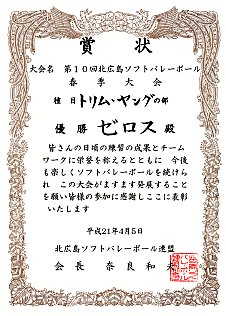 賞状
大会名 第10回北広島ソフトバレーボール
春季大会
種目トリム・ヤングの部
優勝 ゼロス 殿
皆さんの日頃の練習の成果とチーム
ワークに栄誉を称えるとともに 今後
も楽しくソフトバレーボールを続けら
れ この大会がますます発展すること
を願い皆様の参加に感謝しここに表彰
いたします
平成21年4月5日
北広島ソフトバレーボール連盟
会長 奈良和夫